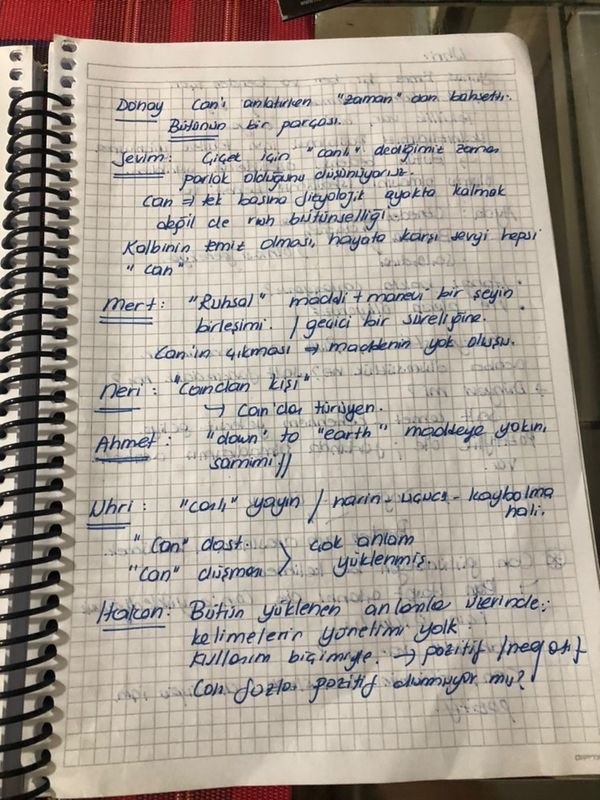 Donay Can'ı anlatırken "zaman" dan bahsetti.
Bütünün bir parçası.
Sevim: Çiçek için "canlı" dediğimiz zaman
parlak olduğunu düşünüyoruz.
Can ⇒ tek başına fizyolojik ayakta kalmak
değil de ruh bütünselliği
Kalbinin temiz olması, hayata karşı sevgi hepsi
"can"
Mert: "Ruhsal" maddi + manevi bir şeyin
birleşimi. / geçici bir süreliğine.
Can'ın çıkması ⇒ maddenin yok oluşu.
Neri: "Candan kişi"
→ Can'dan türüyen.
Ahmet: "down" to "earth" maddeye yakın,
samimi //
Uhri: "canlı" yayın / narin - uçucu - kaybolma
hali.
"Can" dost. > çok anlam
"can" düşman yüklenmiş
Hakan: Bütün yüklenen anlamla üzerinde:
kelimelerin yönelimi yolk
Kullanım biçimiyle. → pozitif / negatif
Can fazla pozitif olunmuyor mu?